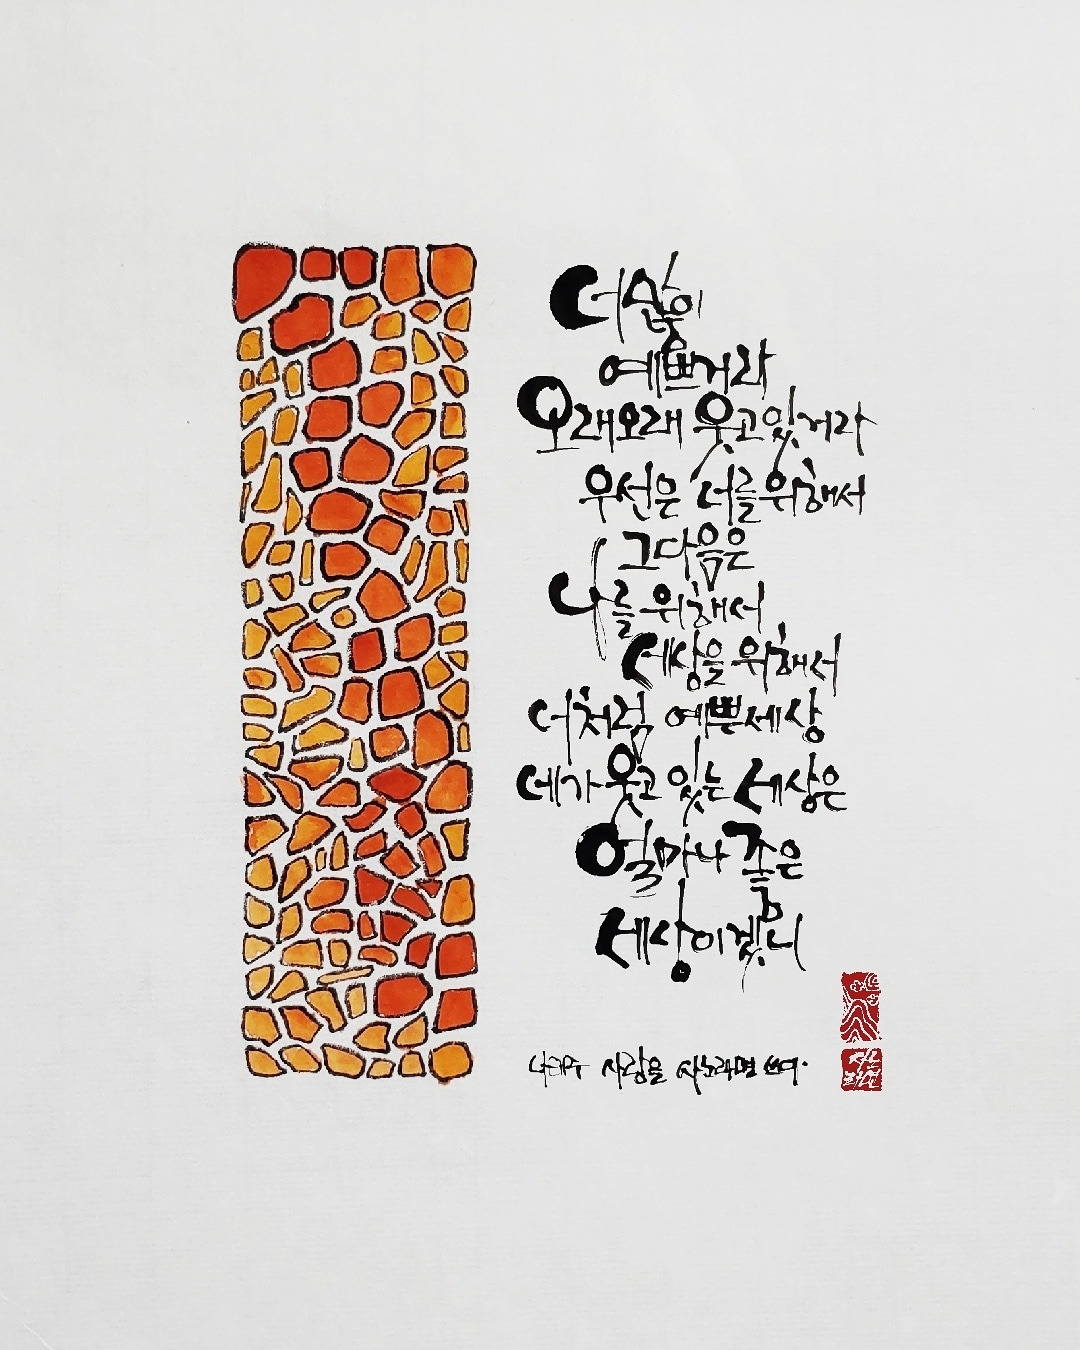 너 많이
예쁘거라
오래오래 웃고 있거라
우선은 너를 위해서
그 다음은
나를 위해서
세상을 위해서
너처럼 예쁜 세상
네가 웃고 있는 세상은
얼마나 좋은
세상이겠니
나태주 사랑을 사노라면
사노
라면